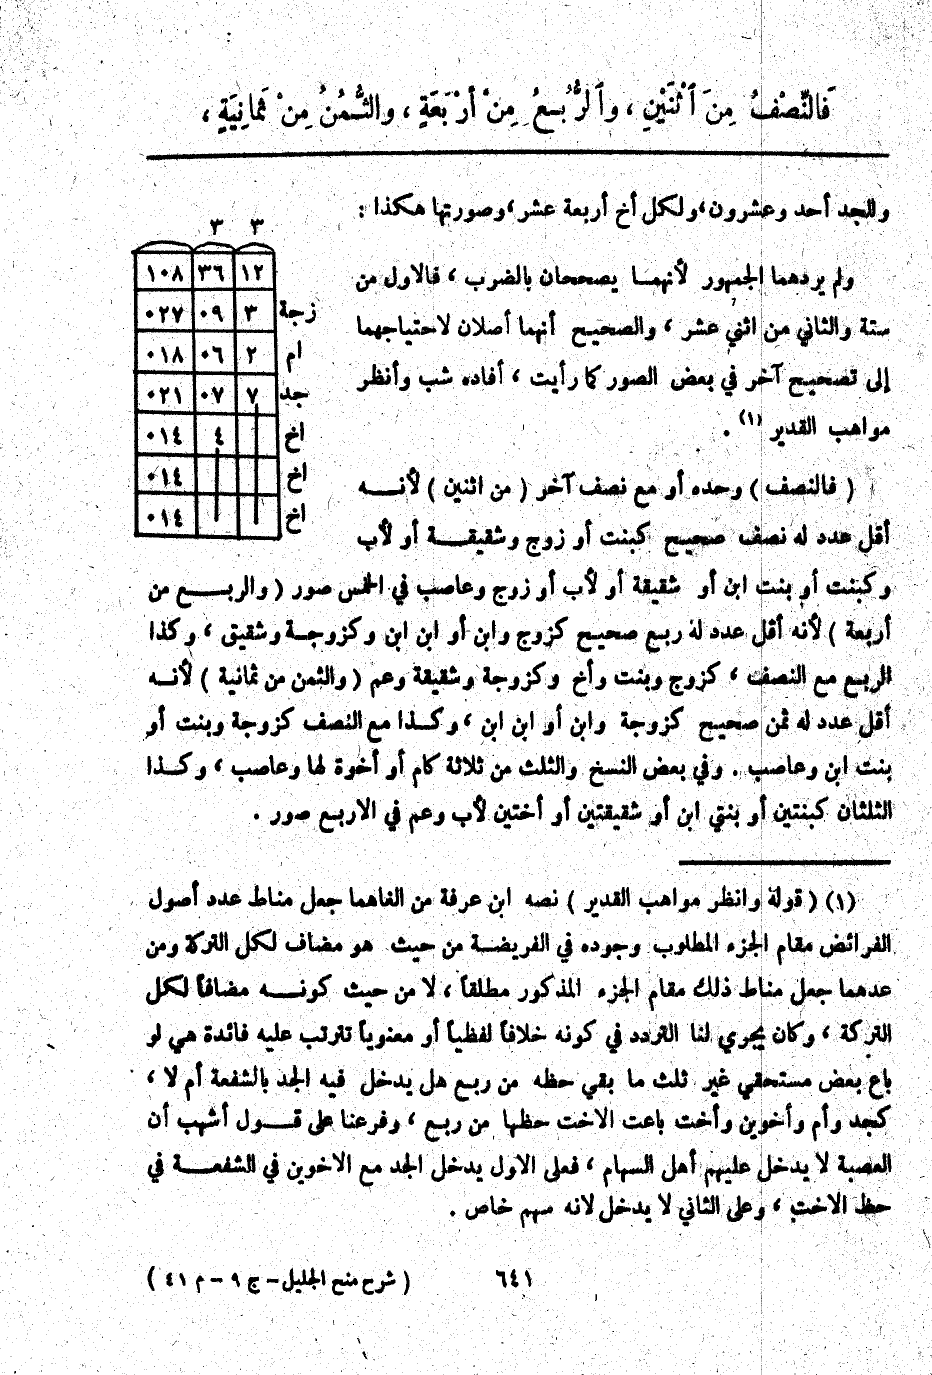 فَالنِّصْفُ مِنَ ٱثْنَيْنِ ، وٱلرُّبُعُ مِنْ أرْبَعَةٍ ، والثُّمُنُ مِنْ ثَمانِيَةٍ ،
وللجد أحد وعشرون،ولكل أخ أربعة عشر،وصورتها هكذا :
٣ ٣
١٢ ٣٦ ١٠٨
زجة ٣ ٠٩ ٠٢٧
ام ٢ ٠٦ ٠١٨
جد ٧ ٠٧ ٠٢١
اخ ٤ ٠١٤
اخ ٠١٤
اخ ٠١٤
ولم يردهما الجمهور لأنهما يصححان بالضرب ، فالاول من
ستة والثاني من اثني عشر ، والصحيح أنهما أصلان لاحتياجهما
إلى تصحيح آخر في بعض الصور كما رأيت ، أفاده شب وأنظر
مواهب القدير (١) .
( فالنصف ) وحده أو مع نصف آخر ( من اثنين ) لأنه
أقل عدد له نصف صحيح كبنت أو زوج وشقيقة أو لأب
وكبنت أو بنت ابن أو شقيقة أو لأب أو زوج وعاصب في الخمس صور ( والربع من
أربعة ) لأنه أقل عدد له ربع صحيح كزوج وابن أو ابن ابن وكزوجة وشقيق ، وكذا
الربع مع النصف ، كزوج وبنت وأخ وكزوجة وشقيقة وعم ( والثمن من ثمانية ) لأنه
أقل عدد له ثمن صحيح كزوجة وابن أو ابن ابن ، وكذا مع النصف كزوجة وبنت أو
بنت ابن وعاصب . وفي بعض النسخ والثلث من ثلاثة كام أو أخوة لها وعاصب ، وكذا
الثلثان كبنتين أو بنتي ابن أو شقيقتين أو أختين لأب وعم في الاربع صور .
(١) ( قولة وانظر مواهب القدير ) نصه ابن عرفة من الغاهما جعل مناط عدد أصول
الفرائض مقام الجزء المطلوب وجوده في الفريضة من حيث هو مضاف لكل التركة ومن
عدهما جعل مناط ذلك مقام الجزء المذكور مطلقاً ، لا من حيث كونه مضافاً لكل
التركة ، وكان يجري لنا التردد في كونه خلافاً لفظياً أو معنوياً تترتب عليه فائدة هي لو
باع بعض مستحقي غير ثلث ما بقي حظه من ربع هل يدخل فيه الجد بالشفعة أم لا ،
كجد وأم وأخوين وأخت باعت الاخت حظها من ربع ، وفرعنا على قول أشهب أن
العصبة لا يدخل عليهم أهل السهام ، فعلى الاول يدخل الجد مع الاخوين في الشفعة في
حظ الاخت ، وعلى الثاني لا يدخل لانه سهم خاص .
٦٤١ ( شرح منح الجليل – ج ٩ – م ٤١ )